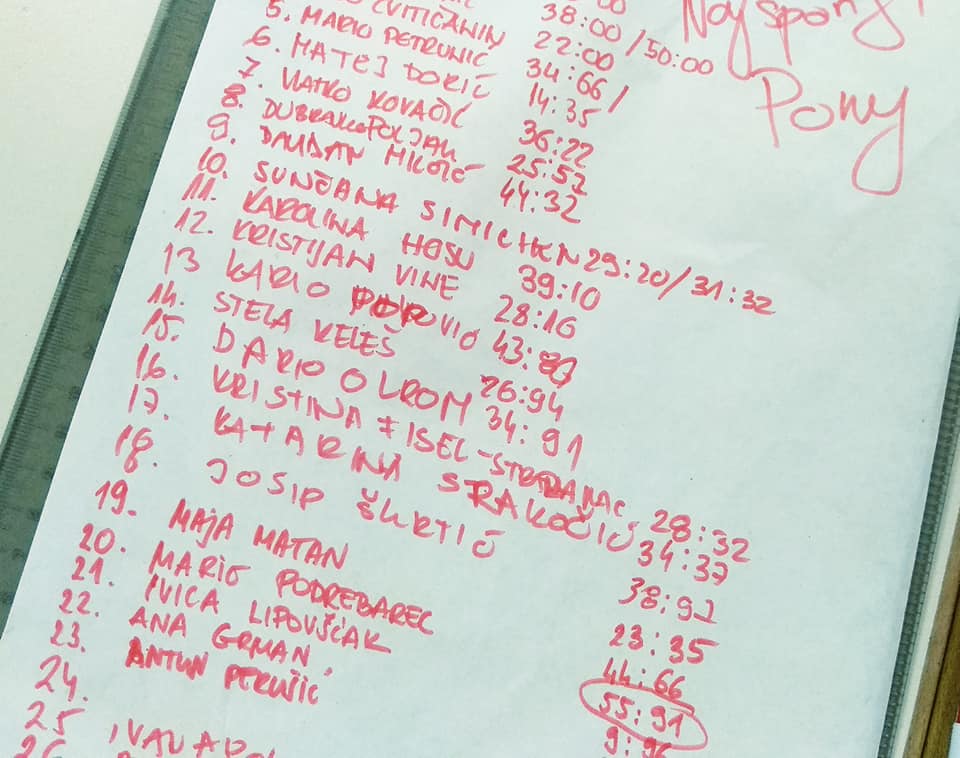 38:00/50:00
CVITIČANIN 22:00
5. MARIO PETRUNIC 34:66/
6. MATEJ DORIČ 14:35
7. VLATKO KOVAČIĆ 36:22
8. DUBRAVKO POLJAK 25:57
9. 44:32
10. SUNČANA SIMICHEN 29:20/31:32
11. KAROLINA HOSU 39:10
12. KRISTIJAN VINE 28:16
13 KARLO POPOVIĆ 43:
14. STELA KELEŠ 26:94
15. DARIO OLROM 34:91
16. KRISTINA FISEL- 28:32
17. KATARINA STRAKOČIĆ 34:37
18. JOSIP ŠKRTIĆ 38:92
19. MAJA MATAN 23:35
20. MARIO PODREBAREC 44:66
21. IVICA LIPOVŠĆAK 55:91
22. ANA GRMAN 9:96
23. ANTUN PERUŠIĆ
24.
25
26
Pony